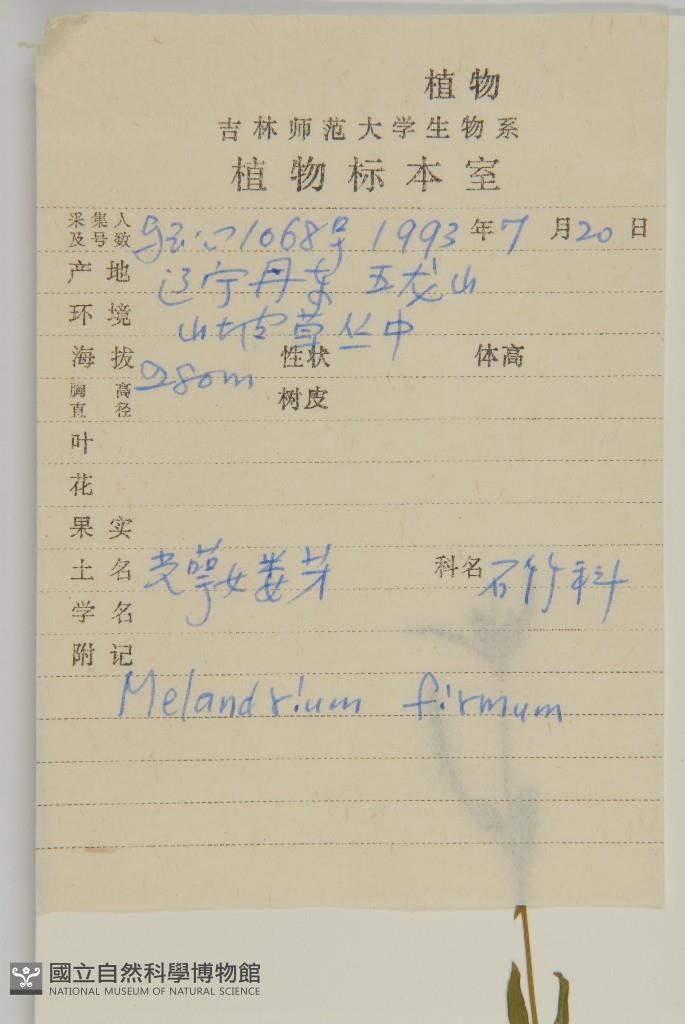 植物
吉林师范大学生物系
植物标本室
采集人及号数 1068号 1993年7月20日
产地 辽宁丹东 五龙山
环境 山坡草丛中
海拔 280m 性状 体高
胸高直径 树皮
叶
花
果实
土名 光萼女娄芽 科名 石竹科
学名
附记
Melandrium firmum
國立自然科學博物館
NATIONAL MUSEUM OF NATURAL SCIENCE